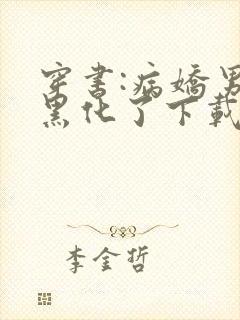 穿书:病娇男
黑化了下载
李金哲